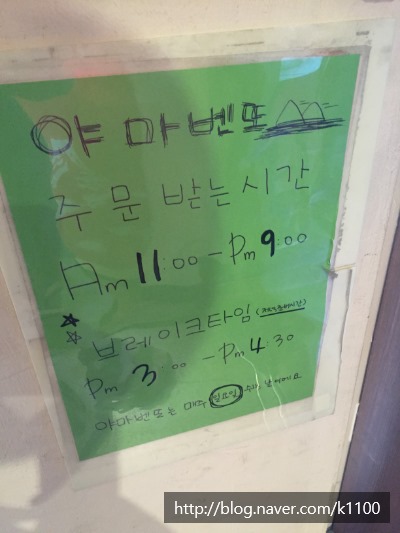 야마벤또
주문 받는 시간
Am 11:00 - Pm 9:00
브레이크타임
Pm 3:00 - Pm 4:30
야마벤또는 매주 일요일 쉬는 날 이에요.
http://blog.naver.com/k1100